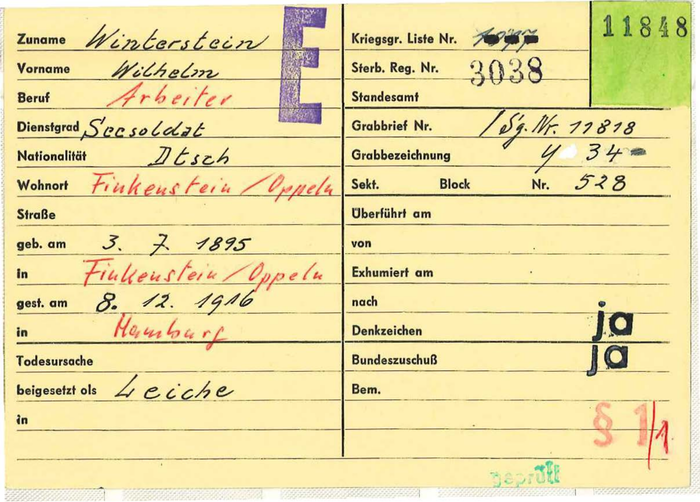 Zuname Winterstein
Vorname Wilhelm
Beruf Arbeiter
Dienstgrad Seesoldat
Nationalität Dtsch
Wohnort Finkenstein/Oppeln
Straße
geb. am 3. 7. 1895
in Finkenstein/Oppeln
gest. am 8. 12. 1916
in Hamburg
Todesursache
beigesetzt als Leiche
in
E
Kriegsgr. Liste Nr.
11848
Sterb. Reg. Nr. 3038
Standesamt
Grabbrief Nr. /Sg. Nr. 11818
Grabbezeichnung y 34
Sekt. Block Nr. 528
Überführt am
von
Exhumiert am
nach
Denkzeichen ja
Bundeszuschuß ja
Bem.
§ 1/1
geprüft